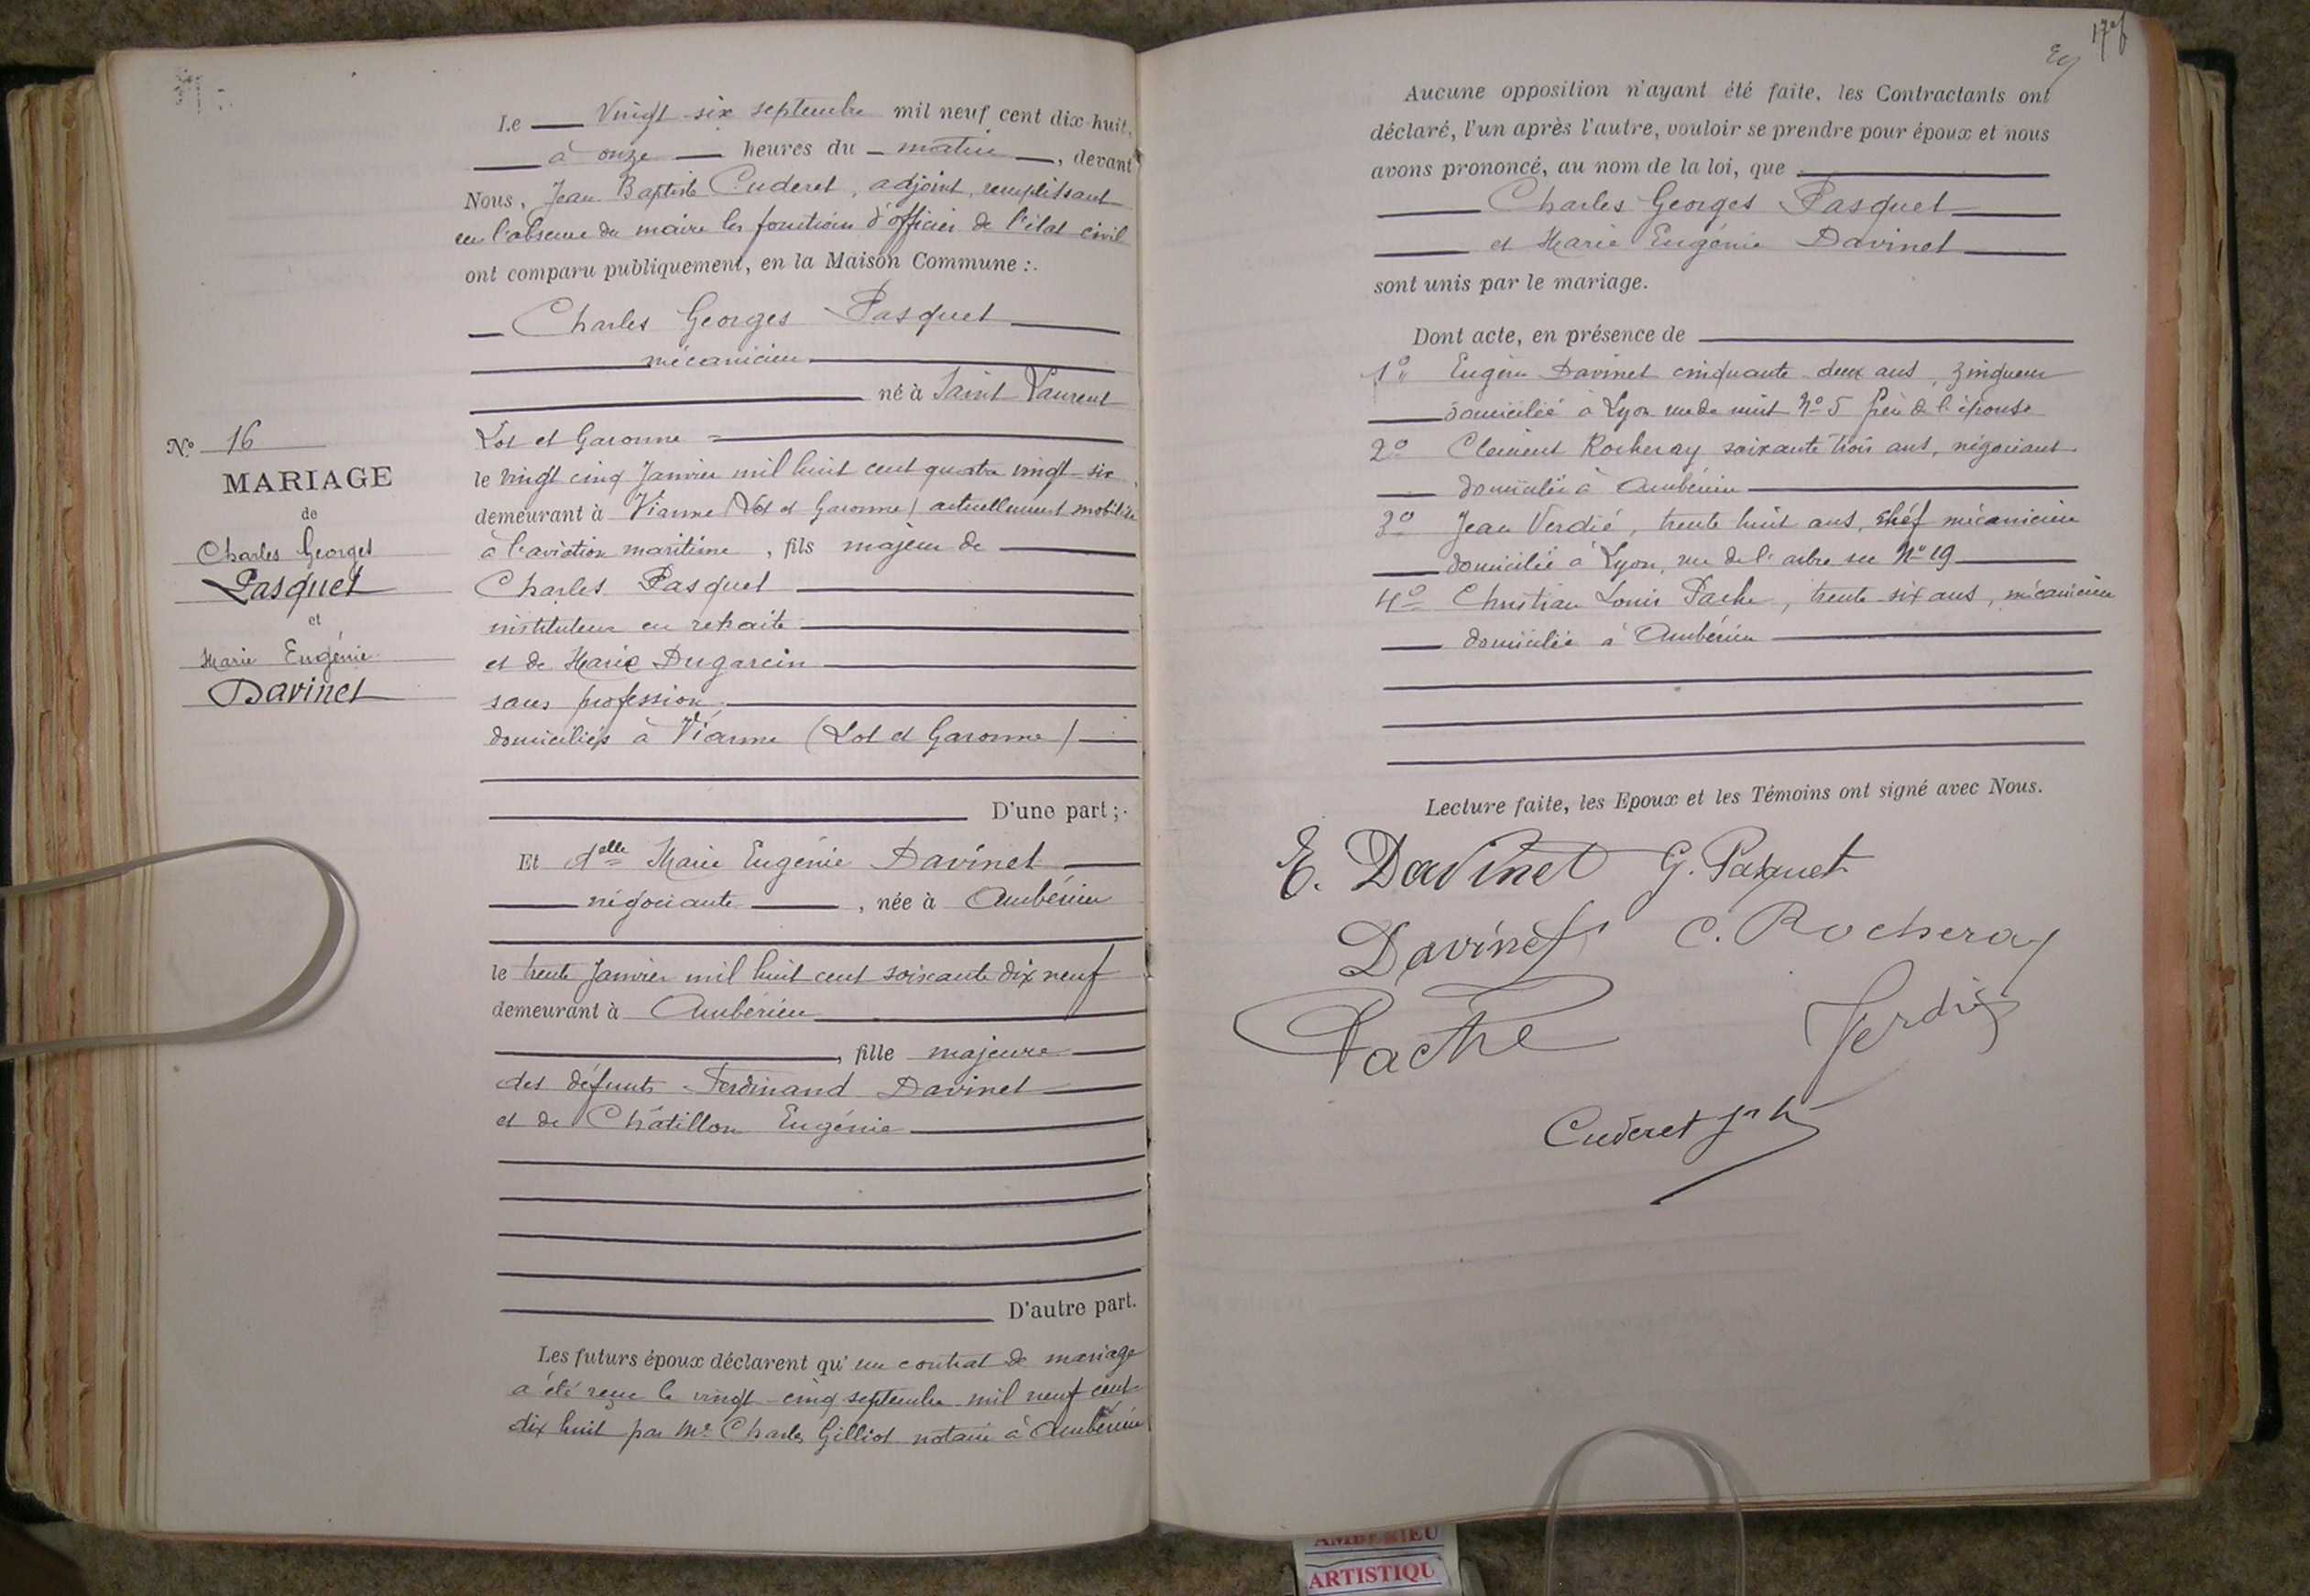 Le Vingt six septembre mil neuf cent dix-huit,
à onze heures du matin, devant
Nous, Jean Baptiste Cuderet, adjoint, remplissant
en l'absence du maire les fonctions d'officier de l'état civil
ont comparu publiquement, en la Maison Commune :
Charles Georges Pasquet
mécanicien
né à Saint Laurent
Lot et Garonne
le vingt cinq Janvier mil huit cent quatre vingt-six,
demeurant à Vianne (Lot et Garonne) actuellement mobilisé
à l'aviation maritime, fils majeur de
Charles Pasquet
instituteur en retraite
et de Marie Dugarcin
sans profession
domiciliés à Vianne (Lot et Garonne)
D'une part ;
Et delle Marie Eugénie Davinet
négociante, née à Ambérieu
le trente Janvier mil huit cent soixante dix neuf
demeurant à Ambérieu
, fille majeure
des défunts Ferdinand Davinet
et de Châtillon Eugénie
D'autre part.
Les futurs époux déclarent qu'un contrat de mariage
a été reçu le vingt-cinq septembre mil neuf cent
dix huit par Me Charles Gilliot notaire à Ambérieu
No 16
MARIAGE
de
Charles Georges
Pasquet
et
Marie Eugénie
Davinet
Aucune opposition n'ayant été faite, les Contractants ont
déclaré, l'un après l'autre, vouloir se prendre pour époux et nous
avons prononcé, au nom de la loi, que
Charles Georges Pasquet
et Marie Eugénie Davinet
sont unis par le mariage.
Dont acte, en présence de
1o Eugène Davinet cinquante-deux ans, zingueur
domicilié à Lyon rue de nuit No 5 frère de l'épouse
2o Clément Rocheray soixante trois ans, négociant
domicilié à Ambérieu
3o Jean Verdié, trente huit ans, chéf mécanicien
domicilié à Lyon, rue de l'arbre sec No 19
4o Christian Louis Pache, trente-six ans, mécanicien
domicilié à Ambérieu
Lecture faite, les Epoux et les Témoins ont signé avec Nous.
E. Davinet G. Pasquet
Davinet C. Rocheray
Pache Verdié
Cuderet
AMBERIEU
ARTISTIQU